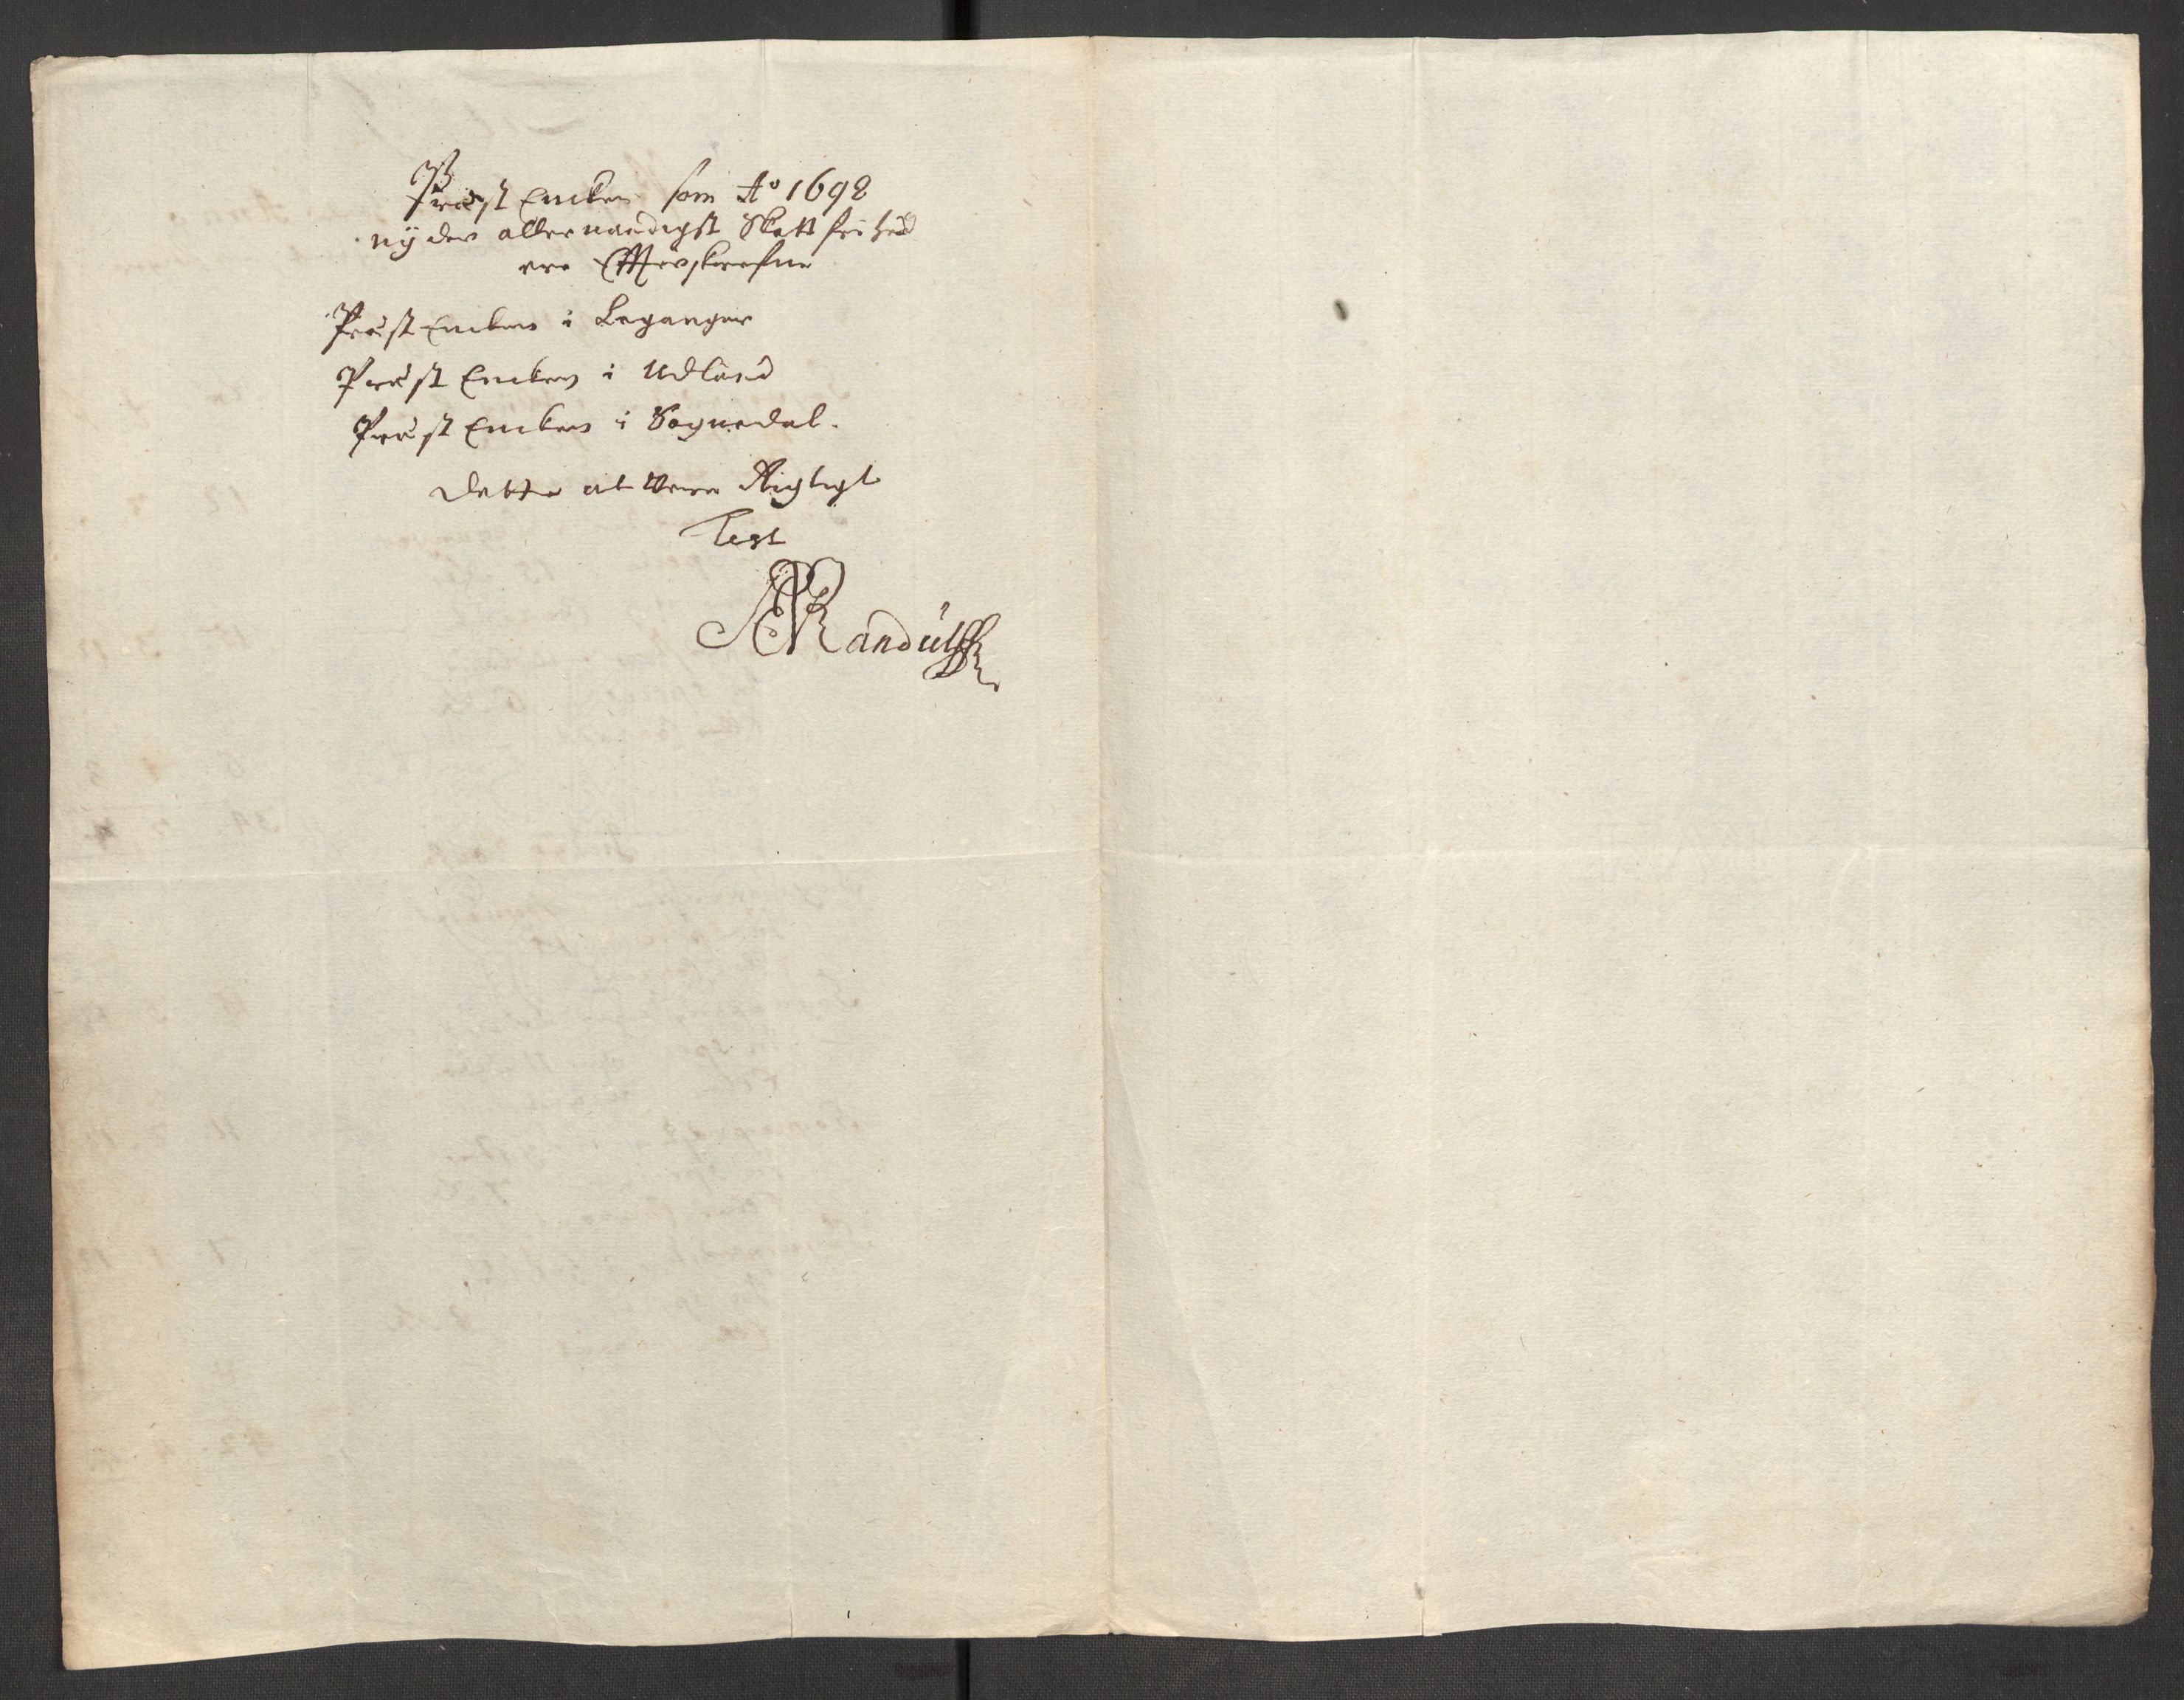 Præst Encker som Ao 1698
nyder allernaadigst Skatt frihed
ere Effterskrefne
Præst Encken i Leganger
Præst Encken i Udland
Præst Encken i Sognedal.
Dette at Were Rigtigt
Test
Randulff